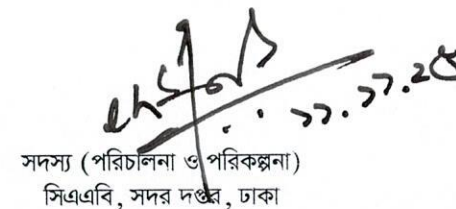 ১১.১১.২৫
সদস্য (পরিচালনা ও পরিকল্পনা)
সিএএবি, সদর দপ্তর, ঢাকা